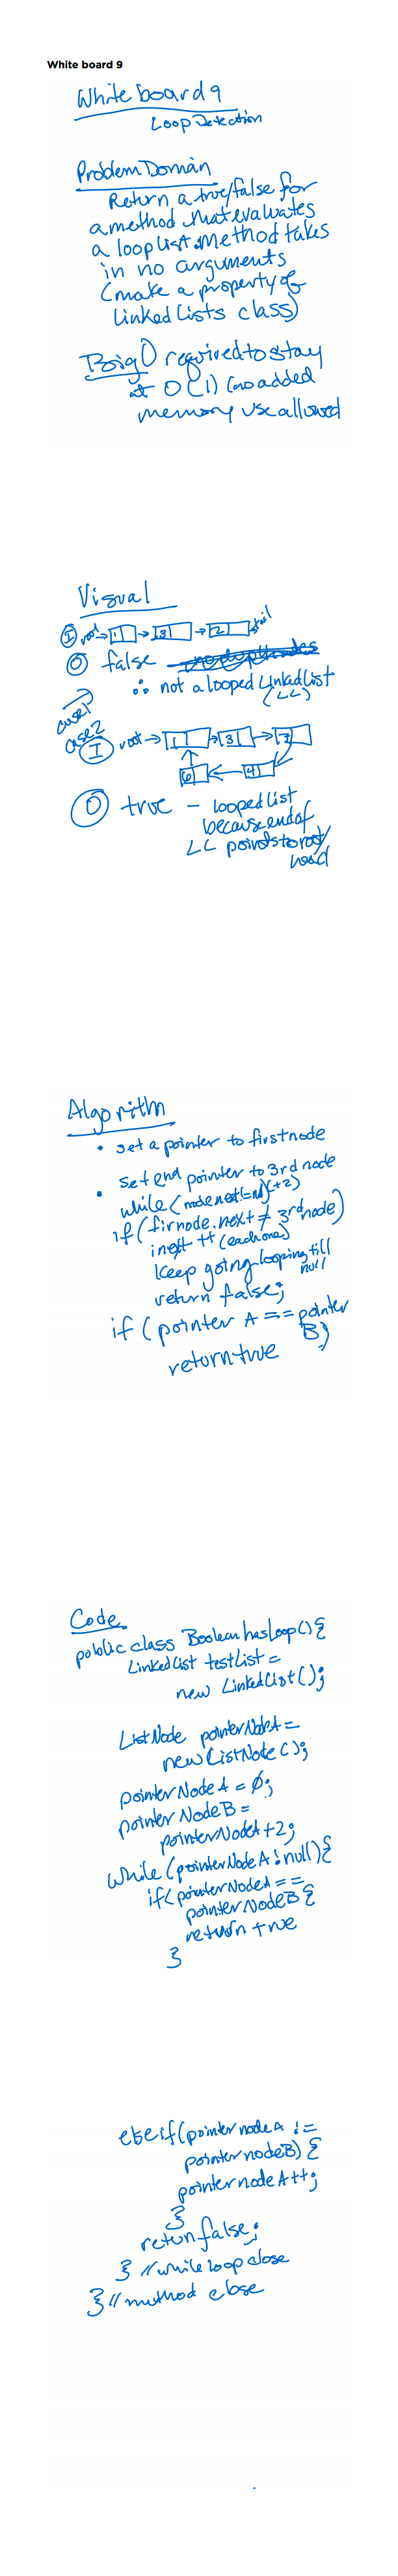 White board 9
White board 9
Loop Detection
Problem Domain
Return a true/false for
a method that evaluates
a loop list. Method takes
in no arguments
(make a property of
Linked Lists class)
Big O required to stay
at O(1) (no added
memory use allowed
Visual
I root → 1 → 3 → 2 → tail
O false
∴ not a looped Linked List
(LL)
case 1
case 2
I root → 1 → 3 → 7
6 ← 4
O true - looped list
because end of
LL points to root/
head
Algorithm
• set a pointer to first node
• set end pointer to 3rd node
while (node.next != null) (+2)
if (firnode.next ≠ 3rd node)
++ (each one)
keep going looping till
null
return false;
if (pointer A == pointer
B)
return true
Code
public class Boolean hasLoop() {
LinkedList testList =
new LinkedList();
ListNode pointerNodeA =
new ListNode();
pointerNodeA = 0;
pointerNodeB =
pointerNodeA+2;
while (pointerNodeA !null) {
if(pointerNodeA ==
pointerNodeB {
return true
}
else if(pointer node A !=
pointer node B) {
pointer node A++;
}
return false;
} // while loop close
} // method close